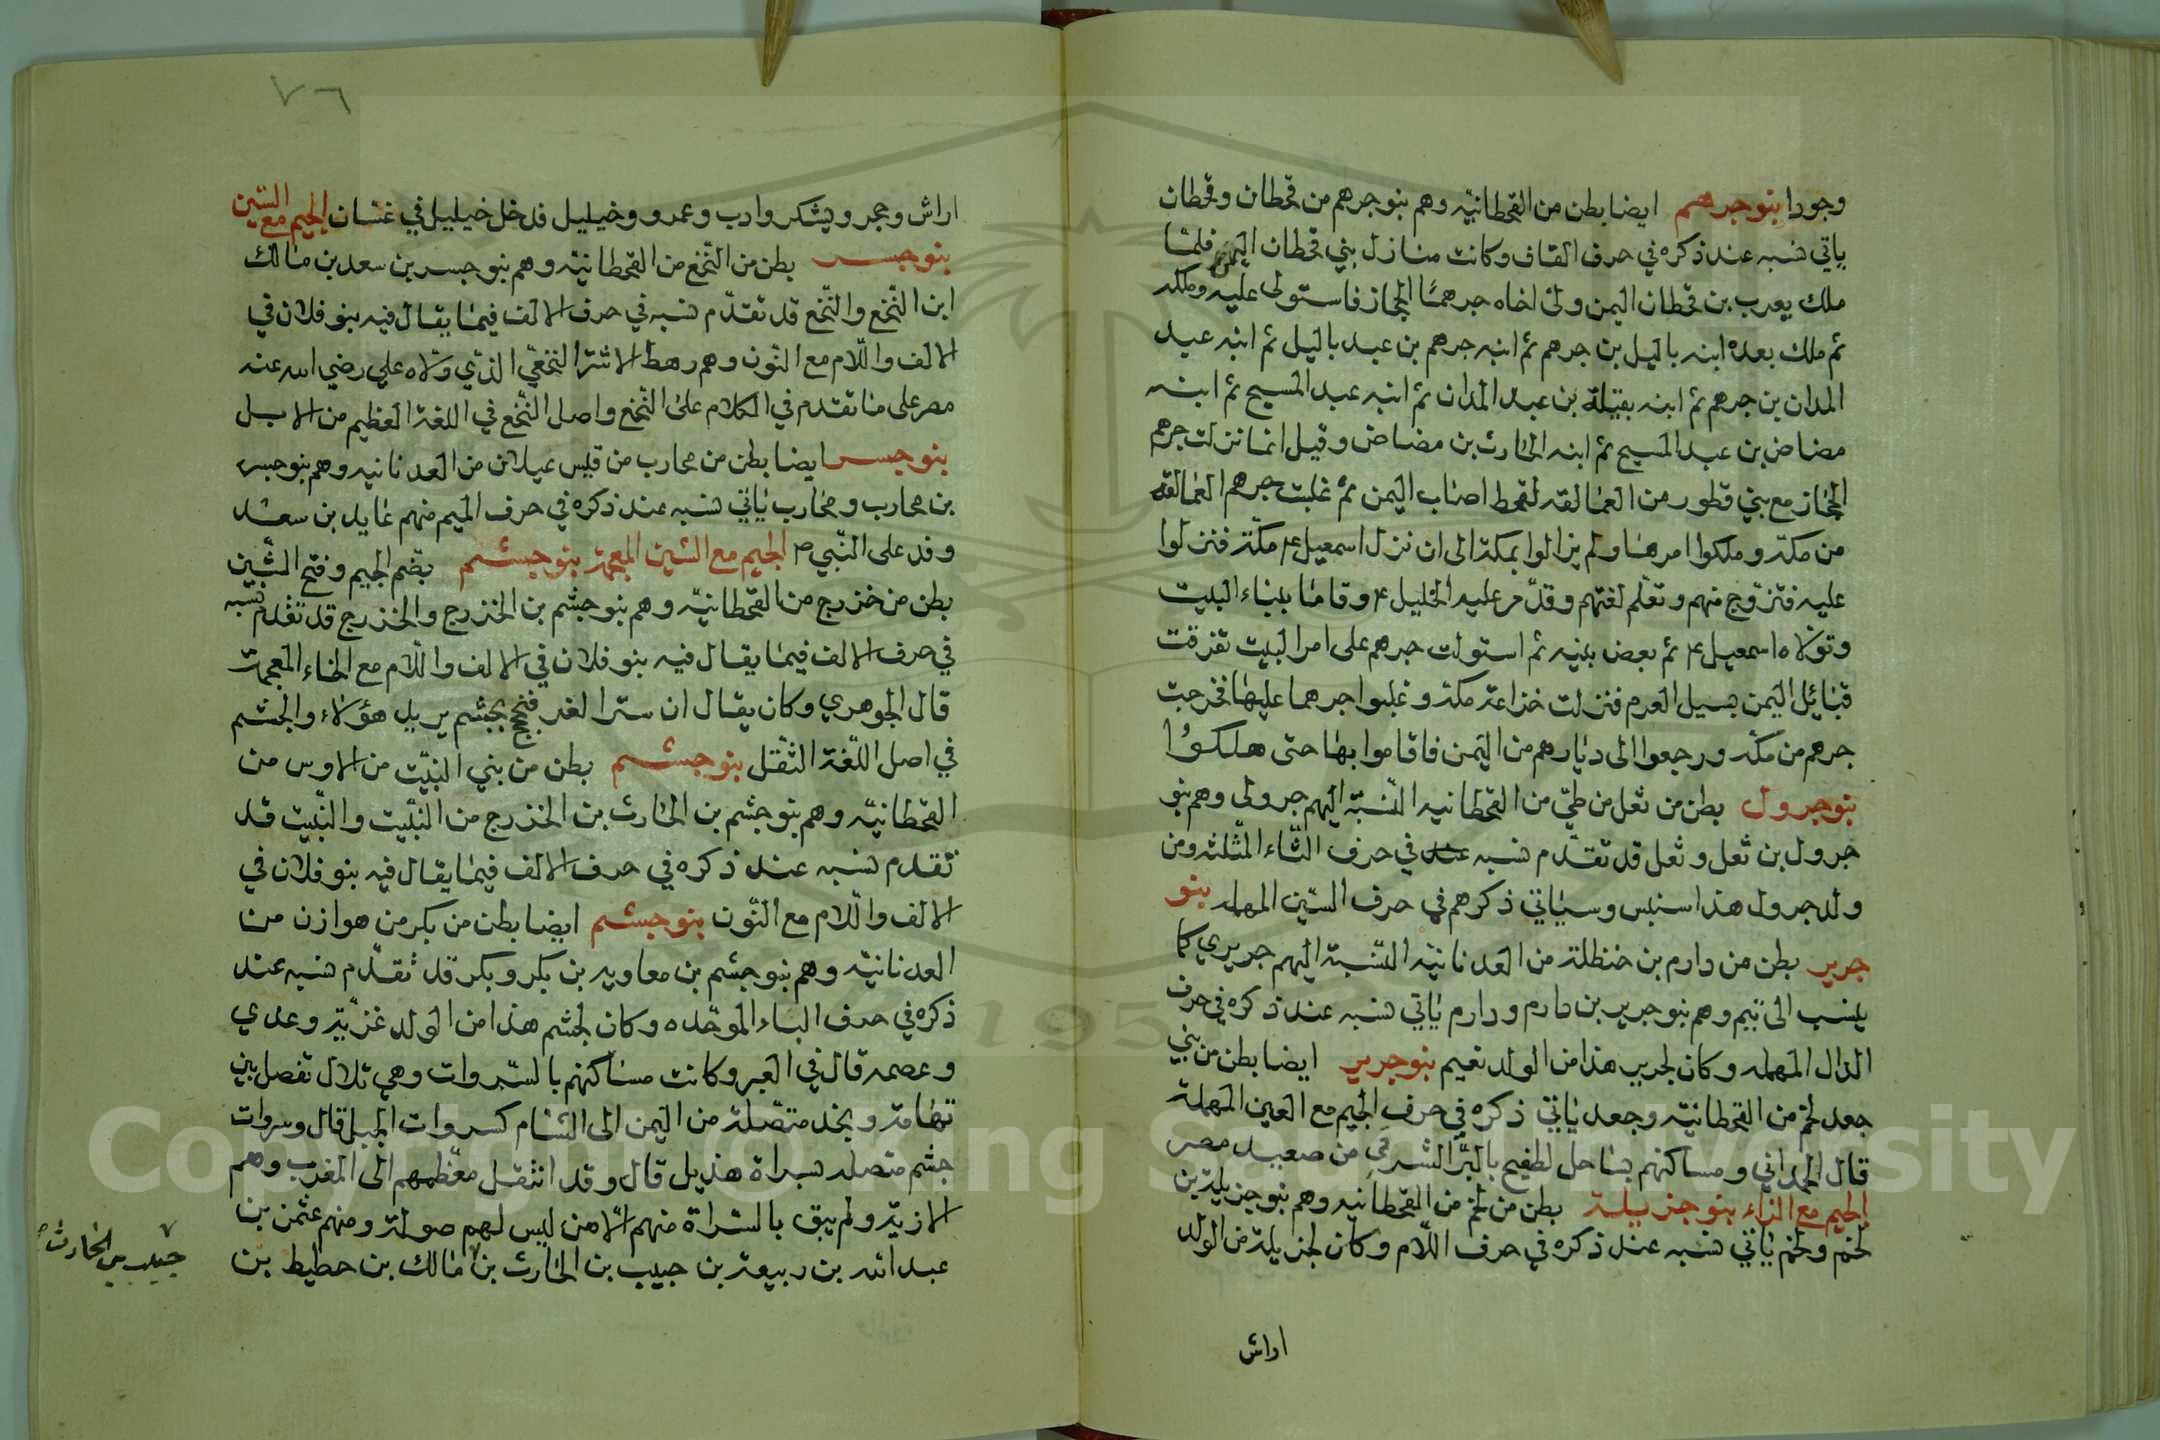 وجودرا بنو جرهم ايضا بطن من القحطانيه وهم بنو جرهم من قحطان وقحطان
ياتي نسبه عند ذكره في حرف القاف وكانت منازل بني قحطان اليمن فلما
ملك يعرب بن قحطان اليمن ولى اخاه جرهما الحجاز فاستولى عليه وملكه
ثم ملك بعده ابنه باليل بن جرهم ثم ابنه جرهم بن عبد باليل ثم ابنه عبد
المدان بن جرهم ثم ابنه بقيلة بن عبد المدان ثم ابنه عبد المسيح ثم ابنه
مضاض بن عبد المسيح ثم ابنه الحارث بن مضاض وقيل انما نزلت جرهم
الحجاز مع بني قطور من العمالقه لقحط اصاب اليمن ثم غلبت جرهم العمالقه
من مكة وملكوا امرها ولم يزالوا بمكة الى ان نزل اسمعيل ع مكة فنزلوا
عليه فتزوج منهم وتعلم لغتهم وقدم عليه الخليل ع وقاما ببناء البيت
وتولاه اسمعيل ع ثم بعض بنيه ثم استولت جرهم على امر البيت تفرقت
قبائل اليمن بسيل العرم فنزلت خزاعة مكة وغلبوا جرهما عليها فخرجت
جرهم من مكه ورجعوا الى ديارهم من اليمن فاقاموا بها حتى هلكوا
بنو جرول بطن من ثعل من طي من القحطانيه النسبة اليهم جرولي وهم بنو
جرول بن ثعل وثعل قد تقدم نسبه عند في حرف الثاء المثلثه ومن
ولد جرول هذا سنبس وسياتي ذكرهم في حرف السين المهمله بنو
جرير بطن من دارم بن حنظلة من العدنانيه النسبة اليهم جريري كما
ينسب الى تيم وهم بنو جرير بن دارم ودارم ياتي نسبه عند ذكره في حرف
الدال المهمله وكان لجرير هذا من الولد نعيم بنو جرير ايضا بطن من بني
جعد لخم من القحطانيه وجعد ياتي ذكره في حرف الجيم مع العين المهملة
قال الحمداني ومساكنهم بساحل لطفيح بالبر الشرقي من صعيد مصر
الجيم مع الزاء بنو جزيلة بطن من لخم من القحطانيه وهم بنو جزيلة بن
لخم ولخم ياتي نسبه عند ذكره في حرف اللام وكان لجزيلة من الولد
اراش
٧٦
اراش وحجر ويشكر وادب وعمرو وخيليل فدخل خيليل في غسان الجيم مع السين
بنو جسر بطن من النخع من القحطانيه وهم بنو جسر بن سعد بن مالك
ابن النخع والنخع قد تقدم نسبه في حرف الالف فيما يقال فيه بنو فلان في
الالف واللام مع النون وهم رهط الاشتر النخعي الذي ولاه علي رضي الله عنه
مصر على ما تقدم في الكلام على النخع واصل النخع في اللغة العظيم من الابل
بنو جسر ايضا بطن من محارب من قيس عيلان من العدنانيه وهم بنو جسر
بن محارب ومحارب ياتي نسبه عند ذكره في حرف الميم منهم عايد بن سعد
وفد على النبي ص الجيم مع الشين المعجمة بنو جشم بضم الجيم وفتح الشين
بطن من خزرج من القحطانيه وهم بنو جشم بن الخزرج والخزرج قد تقدم نسبه
في حرف الالف فيما يقال فيه بنو فلان في الالف واللام مع الخاء المعجمة
قال الجوهري وكان يقال ان سترا لغدر فنجج بجشم يريد هؤلاء والجشم
في اصل اللغة الثقل بنو جشم بطن من بني النبيت من الاوس من
القحطانيه وهم بنو جشم بن الحارث بن الخزرج من النبيت والنبيت قد
تقدم نسبه عند ذكره في حرف الالف فيما يقال فيه بنو فلان في
الالف واللام مع النون بنو جشم ايضا بطن من بكر من هوازن من
العدنانيه وهم بنو جشم بن معاويه بن بكر وبكر قد تقدم نسبه عند
ذكره في حرف الباء الموحده وكان لجشم هذا من الولد غزية وعدي
وعصمه قال في العبر وكانت مساكنهم بالسروات وهي تلال تفصل بين
تهامة ونجد متصلة من اليمن الى الشام كسروات الجبل قال وسروات
جشم متصله بسراة هذيل قال وقد انتقل معظمهم الى المغرب وهم
الازيه ولم يبق بالسراة منهم الا من ليس لهم صولة ومنهم عثمن بن
عبد الله بن ربيعة بن حبيب بن الحارث بن مالك بن حطيط بن
حبيب بن الحارث